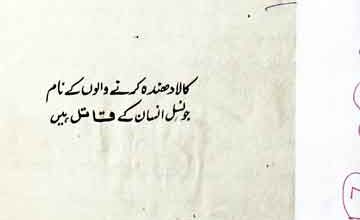 کالا دھندہ کرنے والوں کے نام
جو نسل انسان کے قاتل ہیں